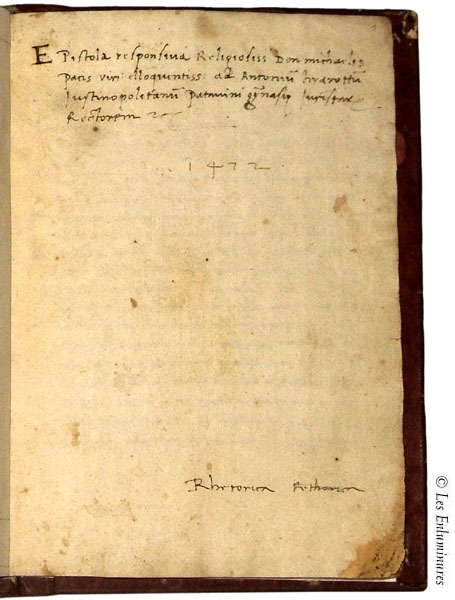 EPistola responsiua Religiosiss Don michaelis
Patis viri elloquentiss: ad Antoniū
Iustinopolitanū Patauini gymnasij Iurisper
Rectorem
1472
Rhetorica Rethorica
© Les Enluminures